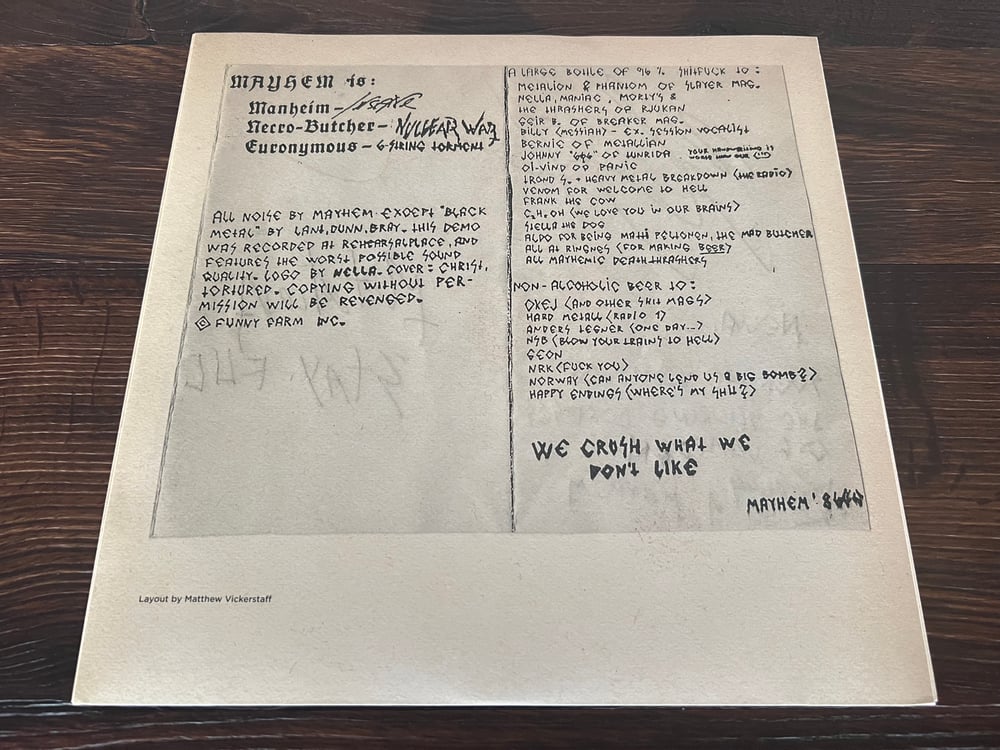 MAYHEM is:
Manheim -
Necro-Butcher - NUCLEAR WAR
Euronymous - 6-STRING TORMENT
ALL NOISE BY MAYHEM EXCEPT "BLACK
METAL" BY LANT, DUNN, BRAY. THIS DEMO
WAS RECORDED AT REHEARSALPLACE, AND
FEATURES THE WORST POSSIBLE SOUND
QUALITY. LOGO BY NELLA. COVER: CHRIST,
TORTURED. COPYING WITHOUT PER-
MISSION WILL BE REVENGED.
FUNNY FARM INC.
A LARGE BOTTLE OF 96 % SHITFUCK TO:
METALION & PHANTOM OF SLAYER MAG.
NELLA, MANIAC, MORTY'S &
THE THRASHERS OF RJUKAN
GEIR B. OF BREAKER MAG.
BILLY (MESSIAH) - EX. SESSION VOCALIST
BERNIE OF METALLIAN
JOHNNY "666" OF UNRIDA YOUR HANDWRITING IS
WORSE THAN OUR
ØI-VIND OF PANIC
TROND S. + HEAVY METAL BREAKDOWN (THE RADIO)
VENOM FOR WELCOME TO HELL
FRANK THE COW
C.H.OH (WE LOVE YOU IN OUR BRAINS)
STELLA THE DOG
ALDO FOR BEING MATTI PELTONEN, THE MAD BUTCHER
ALL AT RINGNES (FOR MAKING BEER)
ALL MAYHEMIC DEATHTHRASHERS
NON-ALCOHOLIC BEER TO:
OKEJ (AND OTHER SHIT MAGS)
HARD METALL (RADIO 1)
ANDERS TEGNER (ONE DAY...)
NSB (BLOW YOUR TRAINS TO HELL)
GEON
NRK (FUCK YOU)
NORWAY (CAN ANYONE LEND US A BIG BOMB?)
HAPPY ENDINGS (WHERE'S MY SHIT?)
WE CRUSH WHAT WE
DON'T LIKE
MAYHEM '8666
Layout by Matthew Vickerstaff